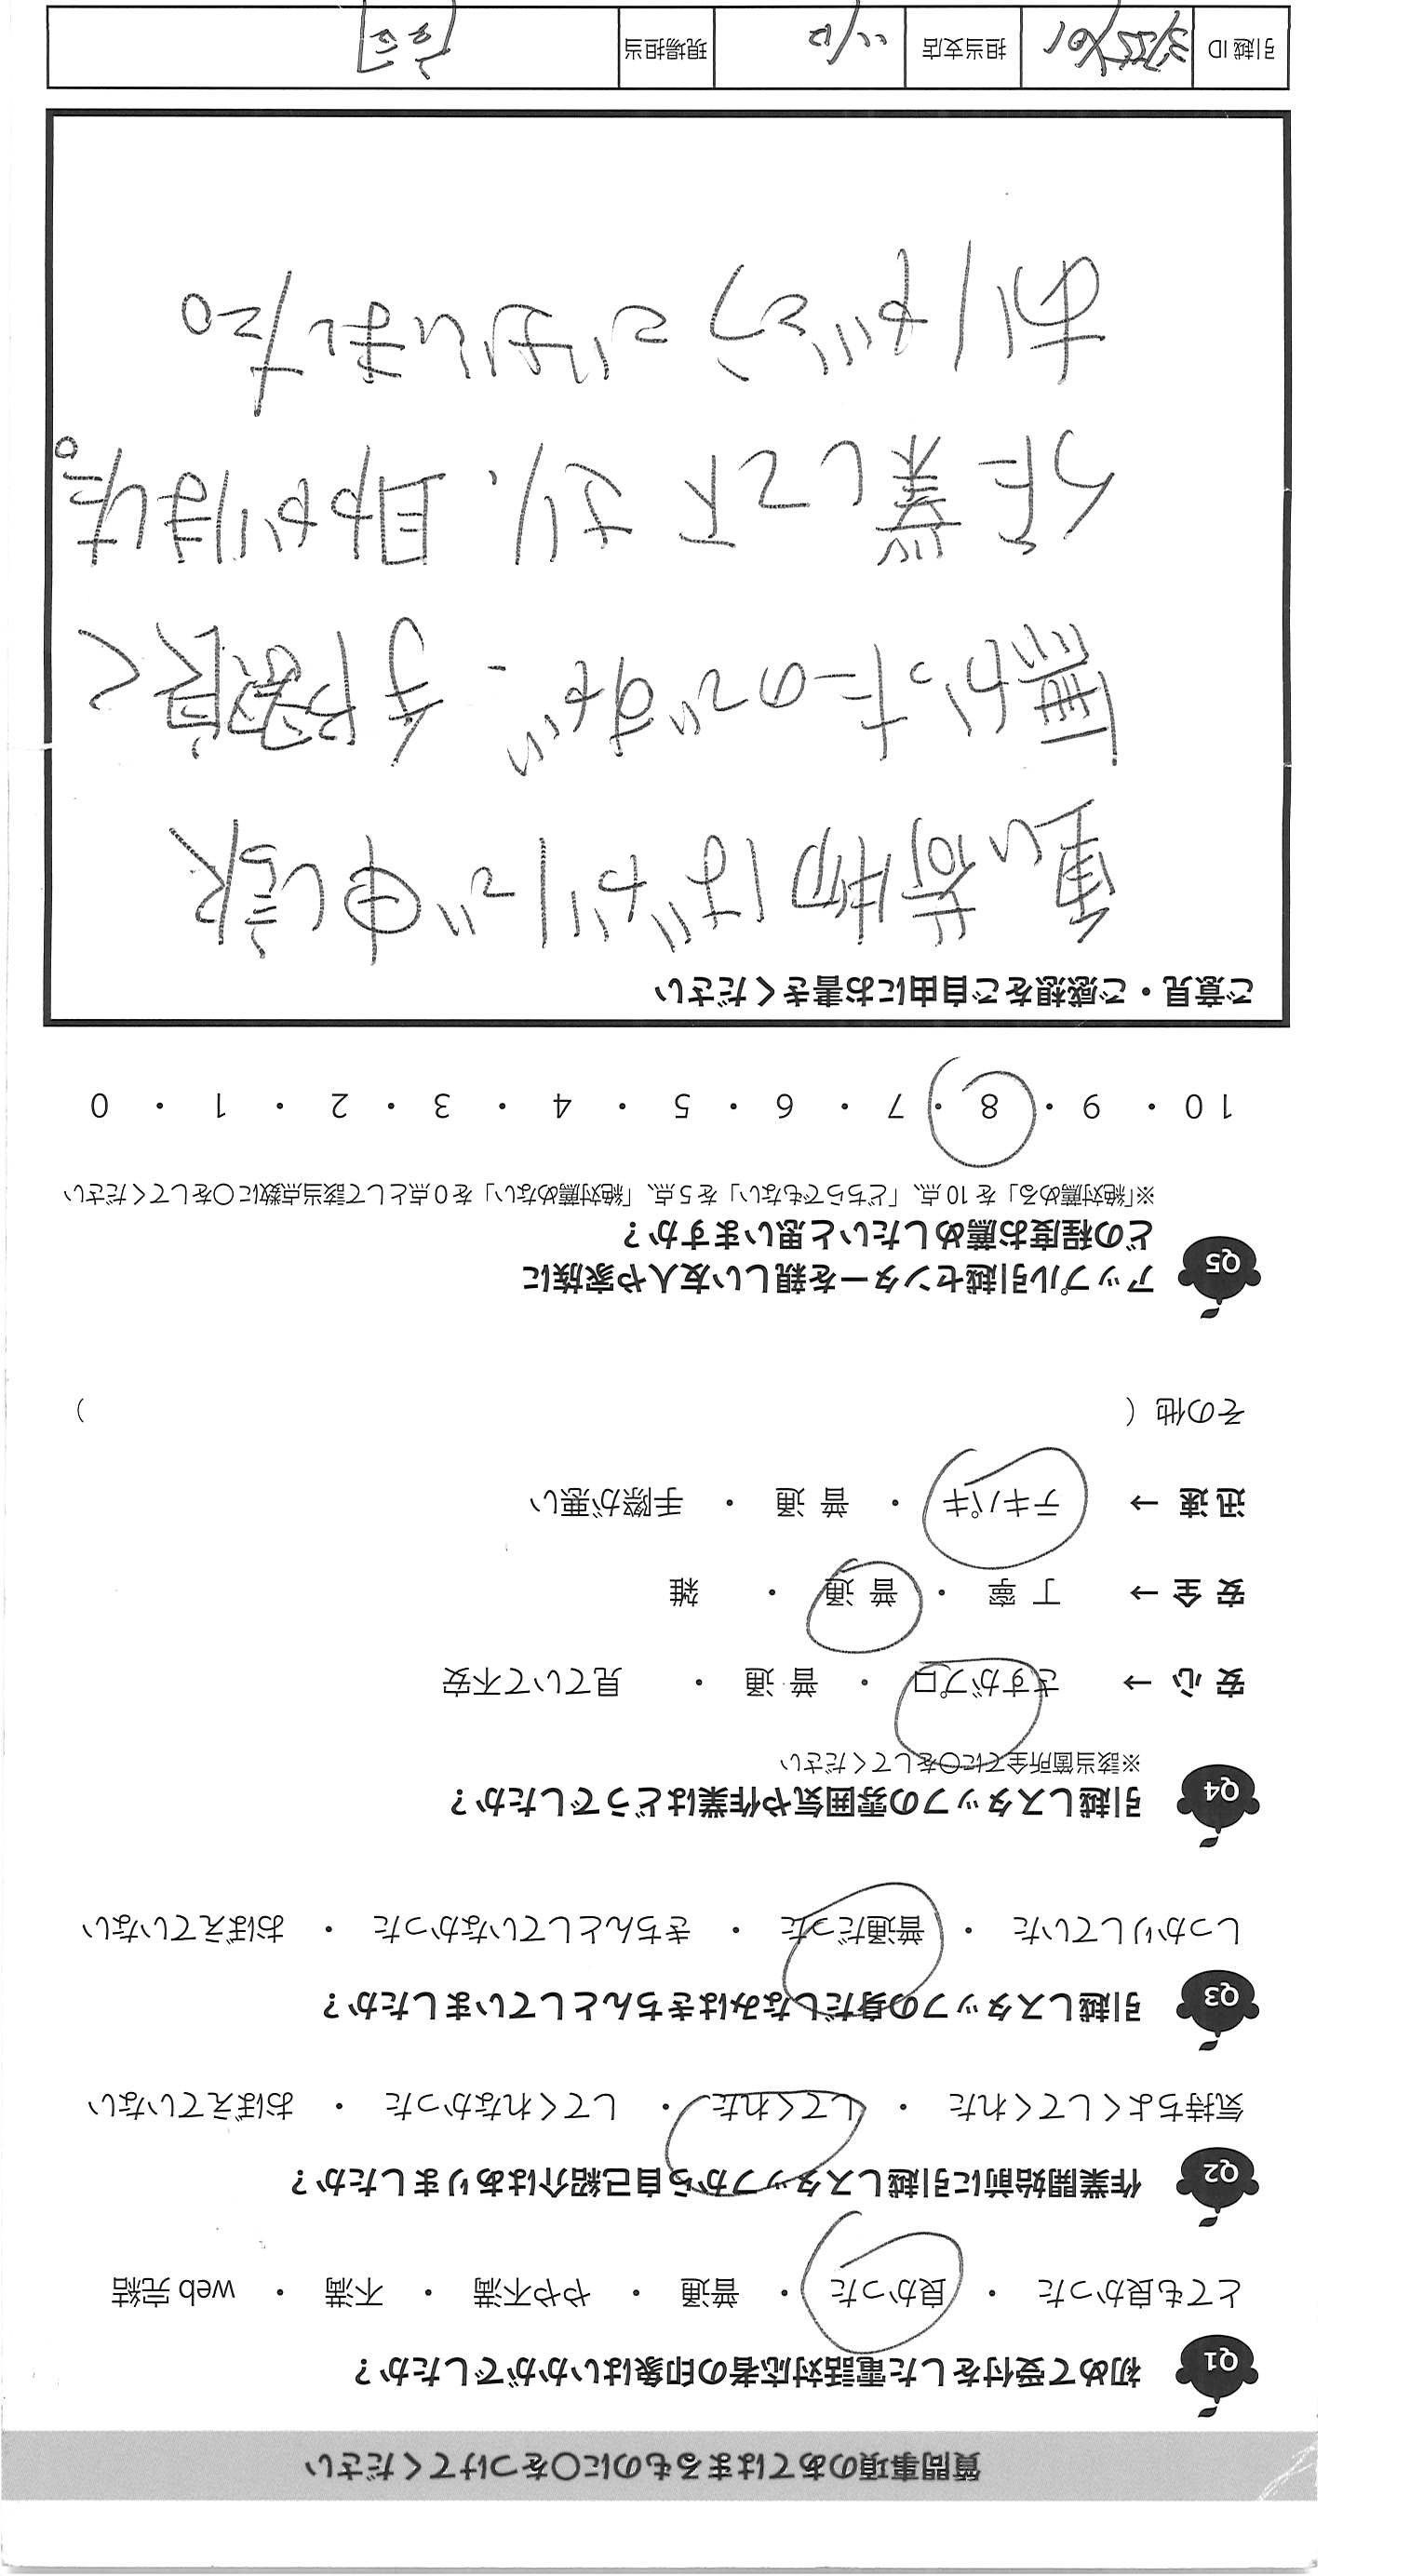 質問事項のあてはまるものに〇をつけてください
Q1 初めて受付をした電話対応者の印象はいかがでしたか?
とても良かった ・ 良かった ・ 普通 ・ やや不満 ・ 不満 ・ web 完結
Q2 作業開始前に引越しスタッフから自己紹介はありましたか?
気持ちよくしてくれた ・ してくれた ・ してくれなかった ・ おぼえていない
Q3 引越しスタッフの身だしなみはきちんとしていましたか?
しっかりしていた ・ 普通だった ・ きちんとしていなかった ・ おぼえていない
Q4 引越しスタッフの雰囲気や作業はどうでしたか?
※該当箇所全てに〇をしてください
安 心 → さすがプロ ・ 普 通 ・ 見ていて不安
安 全 → 丁 寧 ・ 普 通 ・ 雑
迅 速 → テキパキ ・ 普 通 ・ 手際が悪い
その他 ( )
Q5 アップル引越センターを親しい友人や家族に
どの程度お薦めしたいと思いますか?
※「絶対薦める」を 10 点、「どちらでもない」を 5 点、「絶対薦めない」を 0 点として該当点数に〇をしてください
10 ・ 9 ・ 8 ・ 7 ・ 6 ・ 5 ・ 4 ・ 3 ・ 2 ・ 1 ・ 0
ご意見・ご感想をご自由にお書きください
重い荷物ばかりで申し訳
無かったのですが、手際良く
作業して下さり、助かりました。
有りがとうございました。
引越 ID 担当支店 現場担当